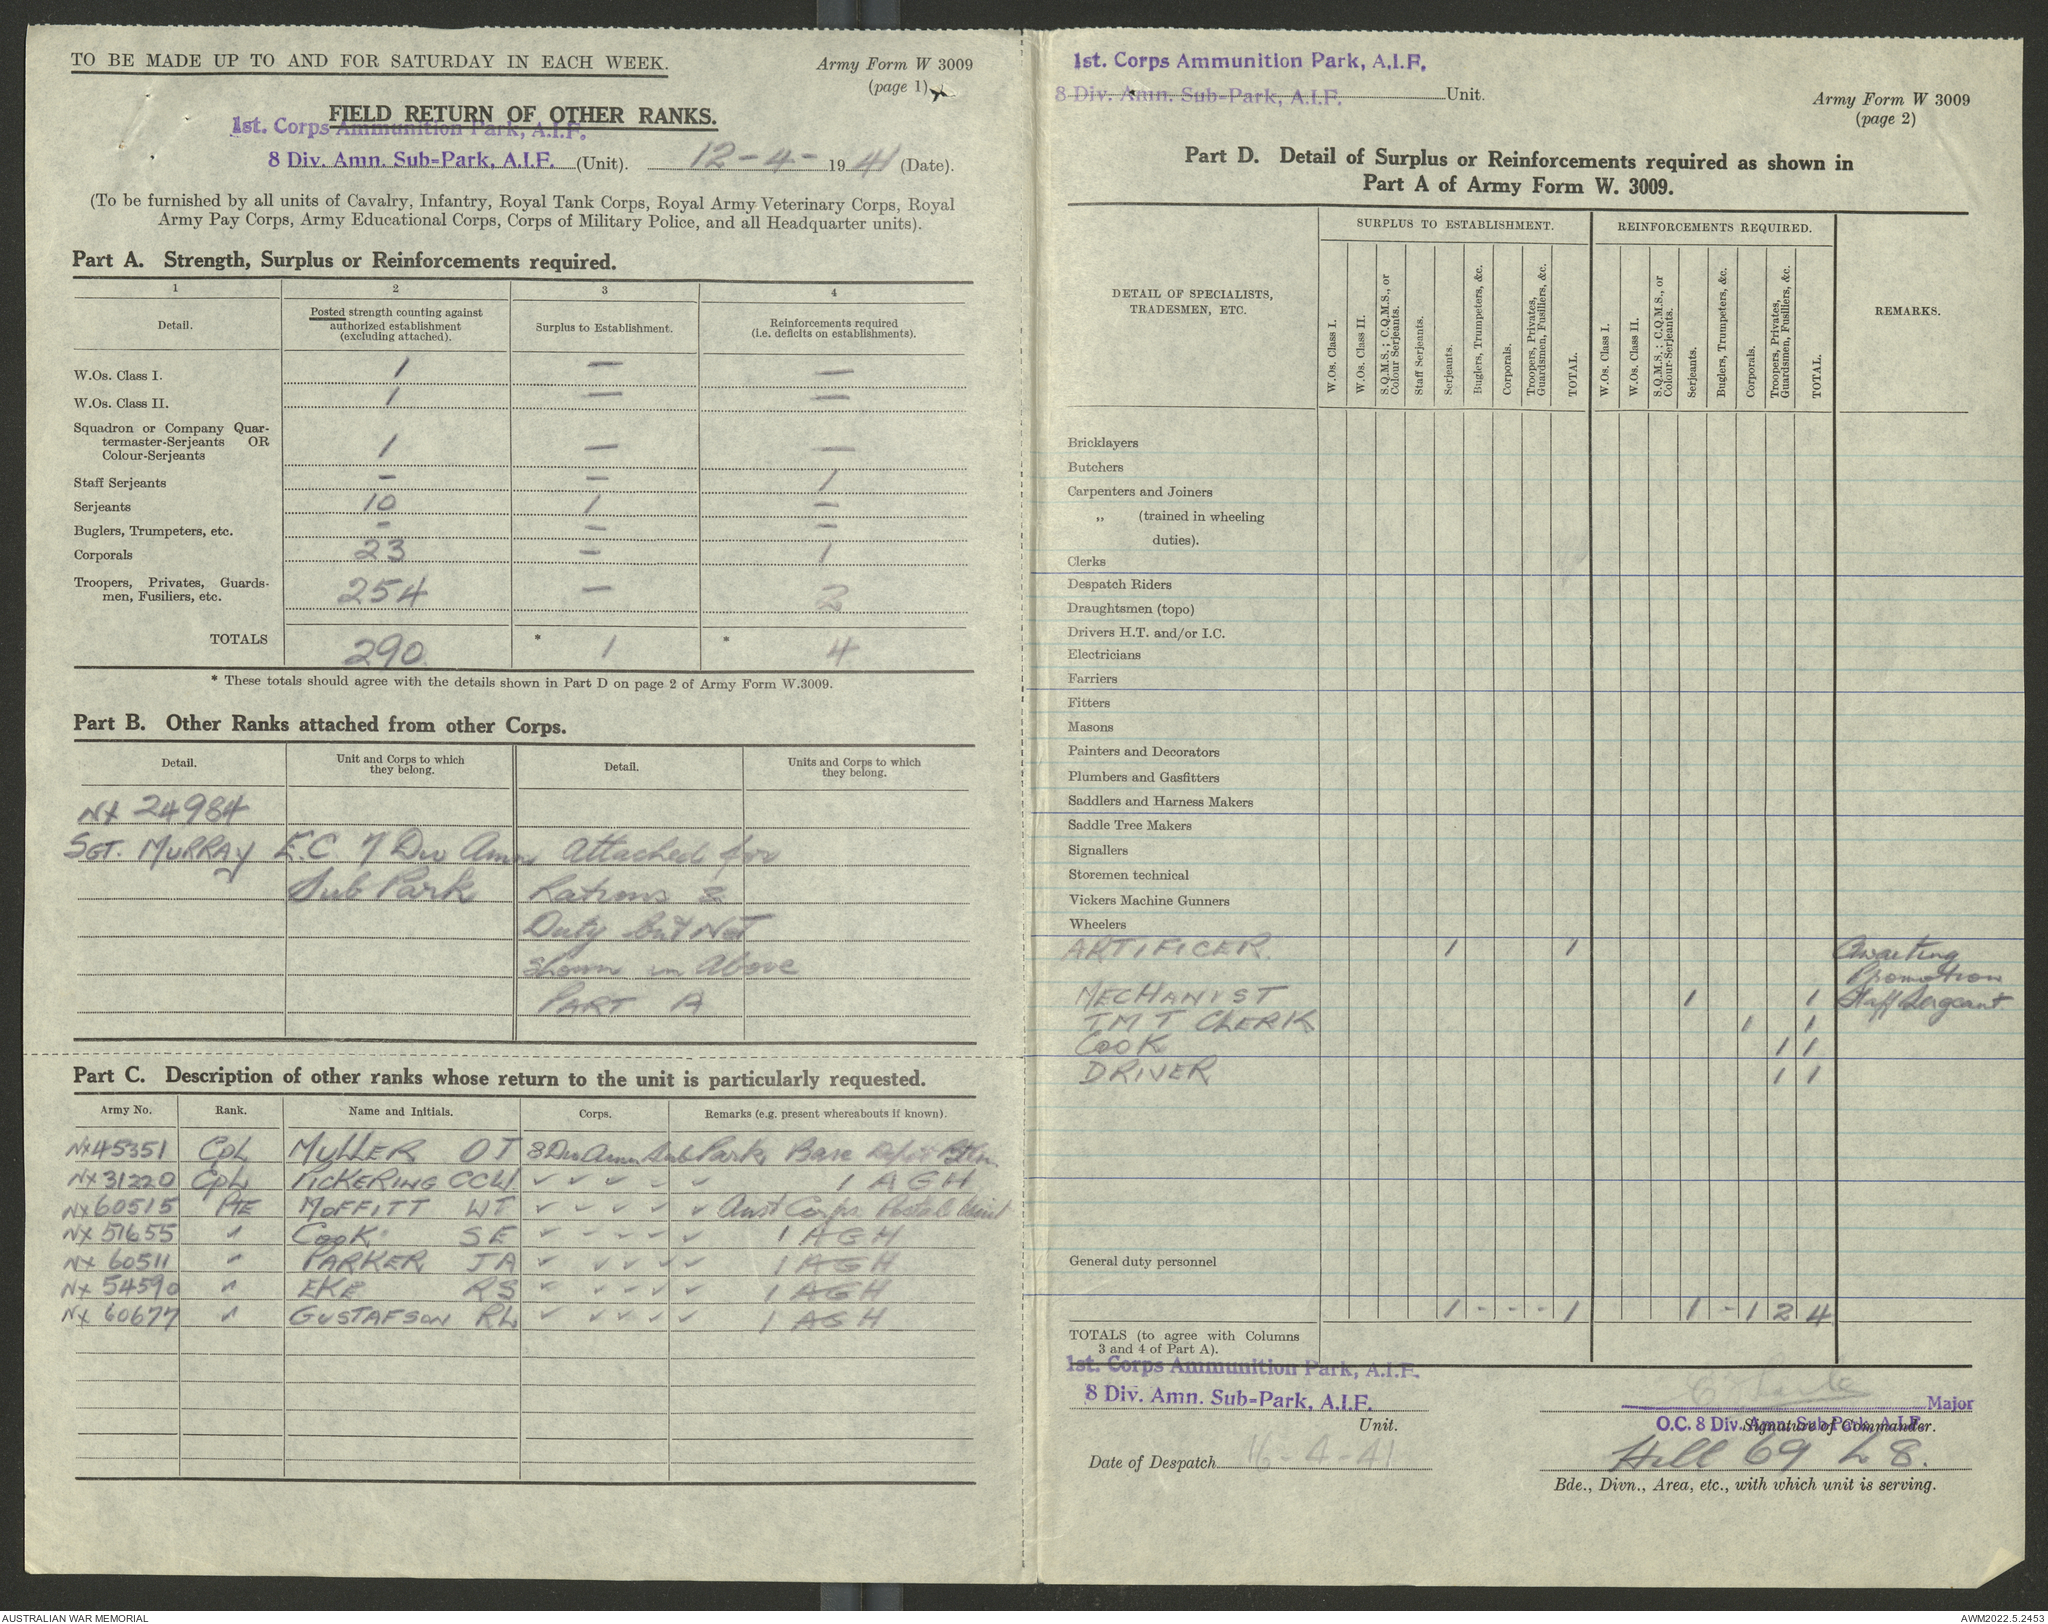 TO BE MADE UP TO AND FOR SATURDAY IN EACH WEEK.
Army Form W 3009
(page 1)
FIELD RETURN OF OTHER RANKS.
1st. Corps Ammunition Park, A.I.F.
8 Div. Amn. Sub-Park, A.I.F. (Unit). 12-4-1941 (Date).
(To be furnished by all units of Cavalry, Infantry, Royal Tank Corps, Royal Army Veterinary Corps, Royal
Army Pay Corps, Army Educational Corps, Corps of Military Police, and all Headquarter units).
Part A. Strength, Surplus or Reinforcements required.
1 2 3 4
Detail. Posted strength counting against authorized establishment (excluding attached). Surplus to Establishment. Reinforcements required (i.e. deficits on establishments).
W.Os. Class I. 1 — —
W.Os. Class II. 1 — —
Squadron or Company Quar-
termaster-Serjeants OR
Colour-Serjeants 1 — —
Staff Serjeants - - 1
Serjeants 10 1 —
Buglers, Trumpeters, etc. - - -
Corporals 23 - 1
Troopers, Privates, Guards-
men, Fusiliers, etc. 254 - 2
TOTALS 290 * 1 * 4
* These totals should agree with the details shown in Part D on page 2 of Army Form W.3009.
Part B. Other Ranks attached from other Corps.
Detail. Unit and Corps to which they belong. Detail. Units and Corps to which they belong.
NX 24984
SGT. MURRAY E.C. 7 Div Amn Attached for
Sub Park Rations &
Duty but Not
shown in Above
PART A
Part C. Description of other ranks whose return to the unit is particularly requested.
Army No. Rank. Name and Initials. Corps. Remarks (e.g. present whereabouts if known).
NX45351 Cpl MULLER OJ 8 Div Amn Sub Park Base Depot
NX31220 Cpl PICKERING CCW ✓ ✓ ✓ ✓ ✓ 1 AGH
NX60515 PTE MOFFITT WT ✓ ✓ ✓ ✓ ✓ Aust Corps Postal Unit
NX51655 " COOK SE ✓ ✓ ✓ ✓ ✓ 1 AGH
NX 60511 " PARKER JA ✓ ✓ ✓ ✓ ✓ 1 AGH
NX 54590 " EKE RS ✓ ✓ ✓ ✓ ✓ 1 AGH
NX 60677 " GUSTAFSON RL ✓ ✓ ✓ ✓ ✓ 1 AGH
1st. Corps Ammunition Park, A.I.F.
8 Div. Amn. Sub-Park, A.I.F. Unit.
Army Form W 3009
(page 2)
Part D. Detail of Surplus or Reinforcements required as shown in
Part A of Army Form W. 3009.
SURPLUS TO ESTABLISHMENT. REINFORCEMENTS REQUIRED.
DETAIL OF SPECIALISTS, TRADESMEN, ETC.
W.Os. Class I.
W.Os. Class II.
S.Q.M.S.; C.Q.M.S., or Colour Serjeants.
Staff Serjeants.
Serjeants.
Buglers, Trumpeters, &c.
Corporals.
Troopers, Privates, Guardsmen, Fusiliers, &c.
TOTAL.
W.Os. Class I.
W.Os. Class II.
S.Q.M.S.; C.Q.M.S., or Colour-Serjeants.
Serjeants.
Buglers, Trumpeters, &c.
Corporals.
Troopers, Privates, Guardsmen, Fusiliers, &c.
TOTAL.
REMARKS.
Bricklayers
Butchers
Carpenters and Joiners
,, (trained in wheeling
duties).
Clerks
Despatch Riders
Draughtsmen (topo)
Drivers H.T. and/or I.C.
Electricians
Farriers
Fitters
Masons
Painters and Decorators
Plumbers and Gasfitters
Saddlers and Harness Makers
Saddle Tree Makers
Signallers
Storemen technical
Vickers Machine Gunners
Wheelers
ARTIFICER. 1 1 Awaiting
Promotion
MECHANIST 1 1 Staff Sergeant
TMT CLERK 1 1
COOK 1 1
DRIVER 1 1
General duty personnel
1 - - - 1 1 - 1 2 4
TOTALS (to agree with Columns
3 and 4 of Part A).
1st. Corps Ammunition Park, A.I.F.
8 Div. Amn. Sub-Park, A.I.F.
Unit.
Major
O.C. 8 Div. Amn. Sub-Park, A.I.F.
Signature of Commander.
Date of Despatch 16-4-41
Hill 69 L 8.
Bde., Divn., Area, etc., with which unit is serving.
AUSTRALIAN WAR MEMORIAL
AWM2022.5.2453